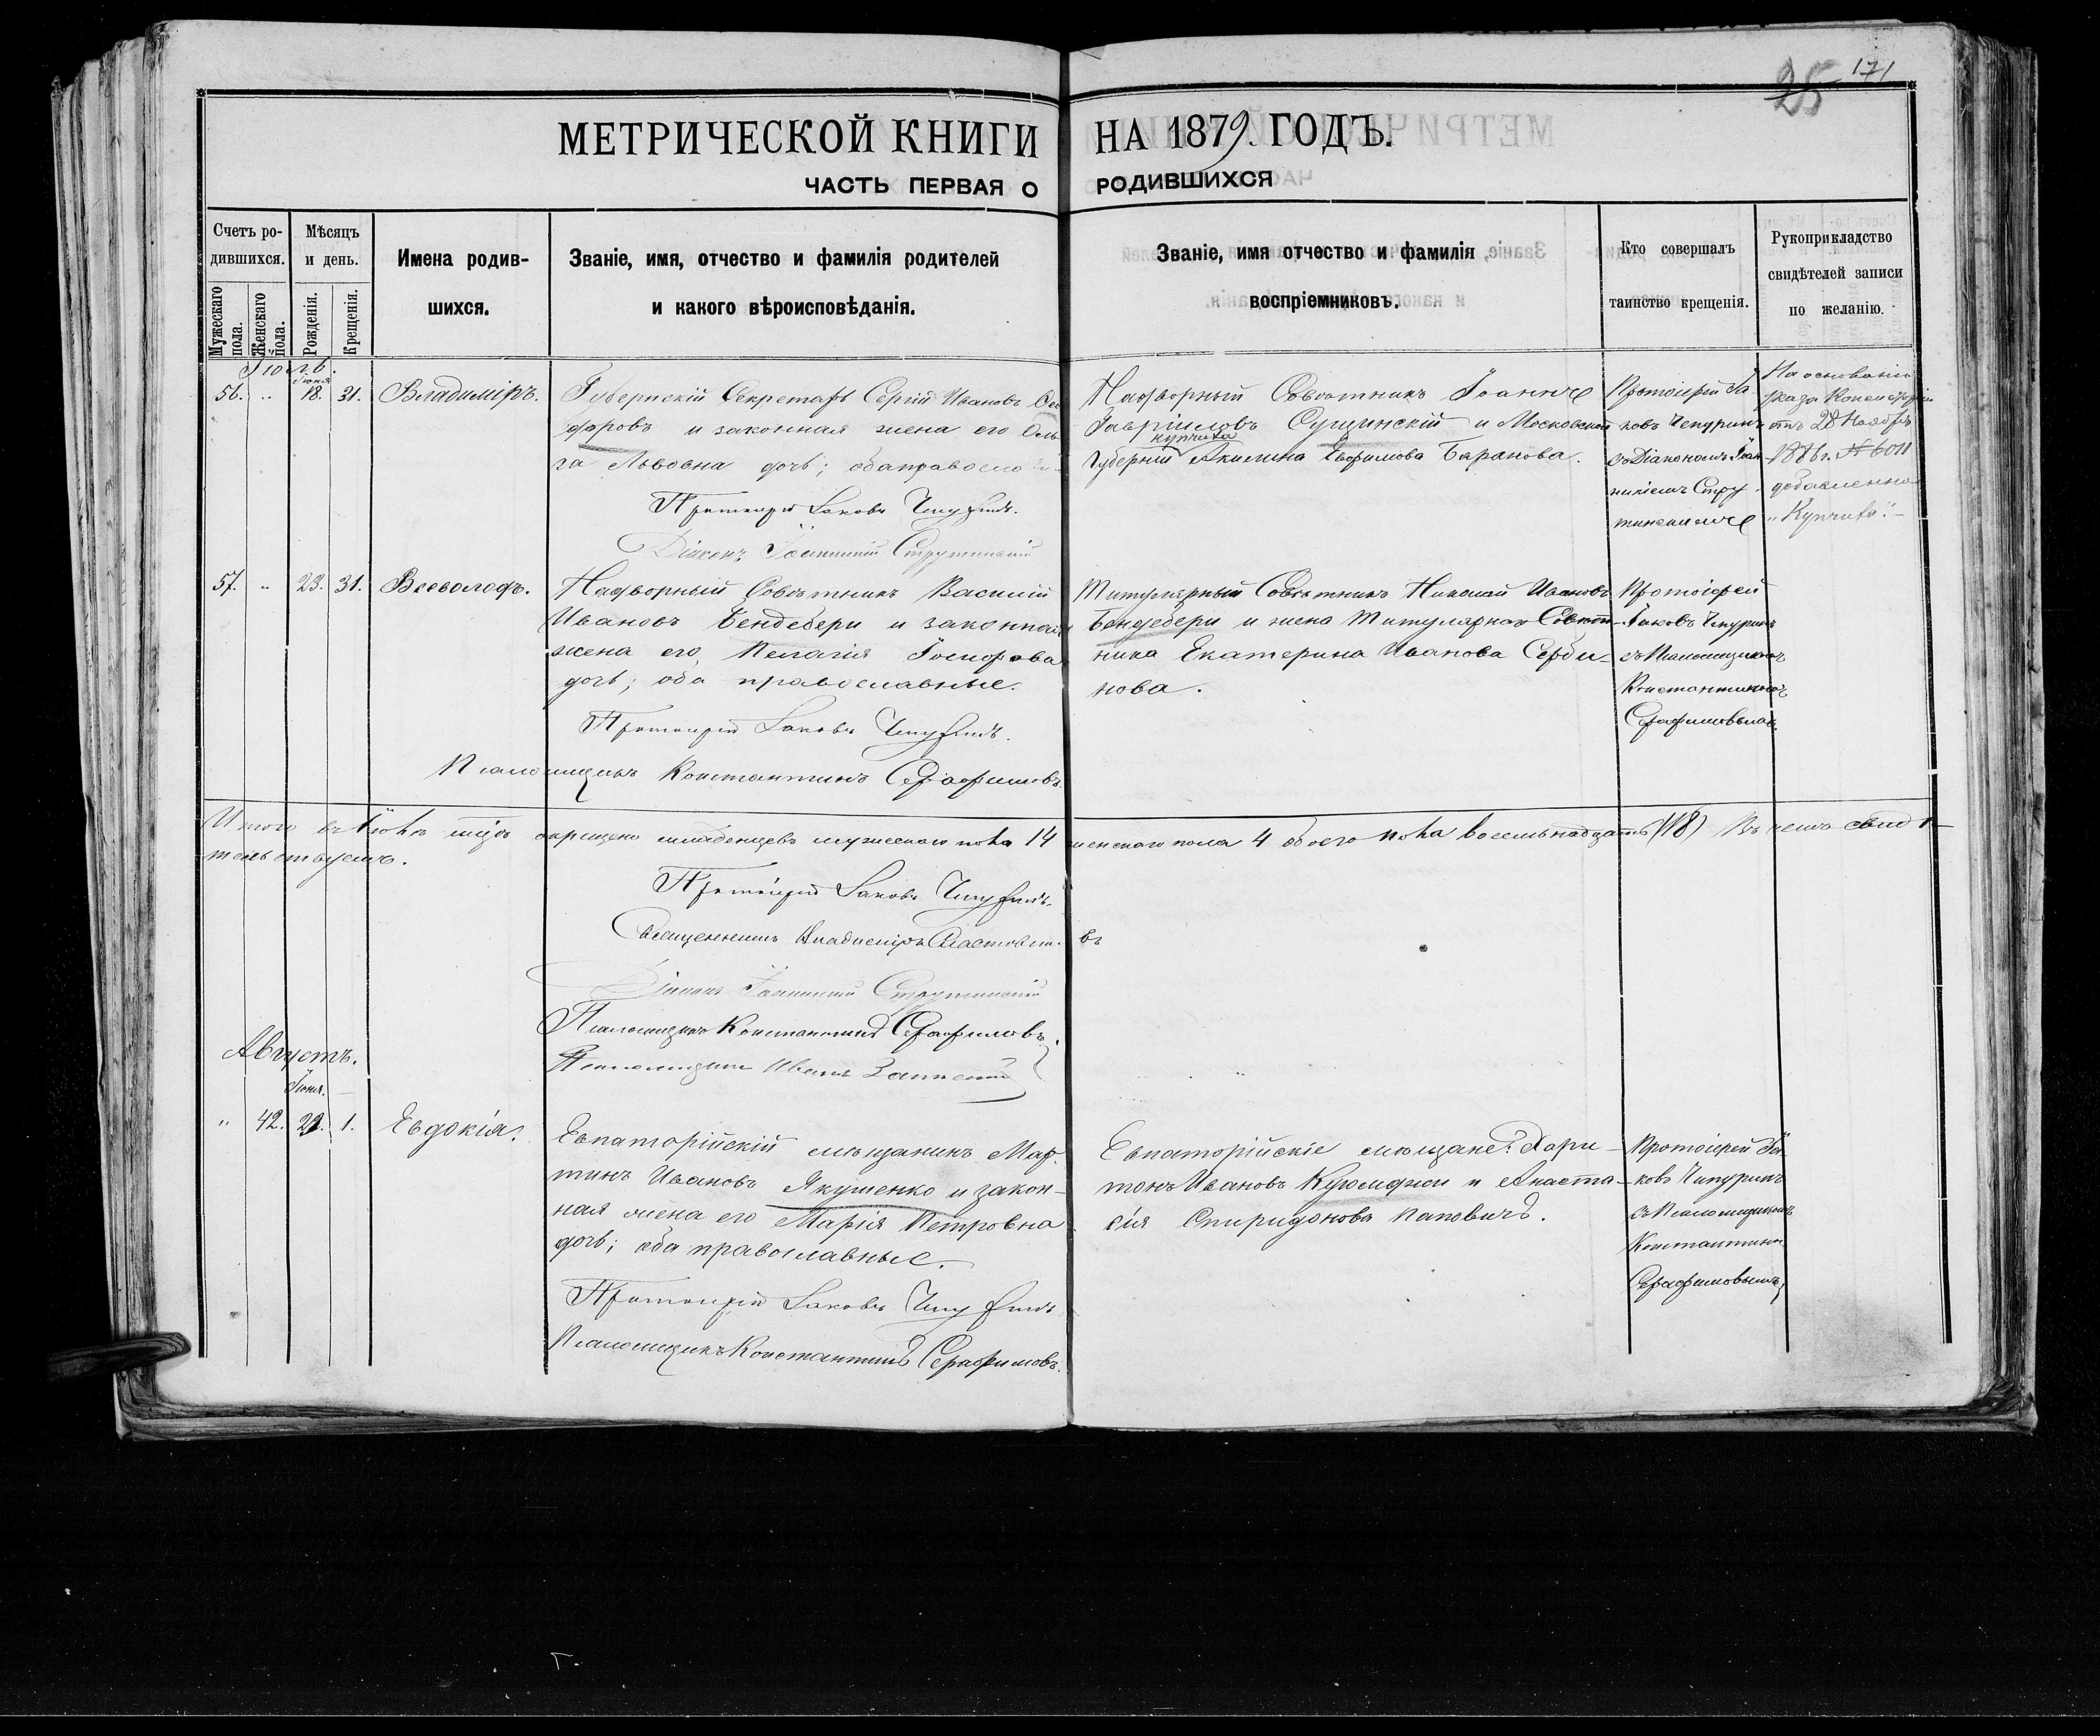 25 171
МЕТРИЧЕСКОЙ КНИГИ НА 1879. ГОДЪ.
ЧАСТЬ ПЕРВАЯ О РОДИВШИХСЯ
Счетъ ро-
дившихся.
Мужескаго пола.
Женскаго пола.
Мѣсяцъ
и день.
Рожденія.
Крещенія.
Имена родив-
шихся.
Званіе, имя, отчество и фамилія родителей
и какого вѣроисповѣданія.
Званіе, имя отчество и фамилія
воспріемниковъ.
Кто совершалъ
таинство крещенія.
Рукоприкладство
свидѣтелей записи
по желанію.
Іюль.
Іюня
56. „ 18. 31. Владиміръ.
Губернскій Секретарь Сергій Ивановъ
и законная жена его Оль-
га Львовна дочь;
Протоіерей Іаковъ Чепуринъ.
Діаконъ Іоанникій Струтинскій
Надворный Совѣтникъ Іоаннъ
Гавріиловъ Сущинскій и Московской
купчиха
Губерніи Акилина Евфимова Баранова.
Протоіерей Іа-
ковъ Чепуринъ
съ Діакономъ Іоан-
никіемъ Стру-
тинскимъ
На основаніи
указа Консисторіи
отъ 28 Ноября
188 г. № 6011
добавленно
„Купчиха".-
57. „ 23. 31. Всеволодъ.
Надворный Совѣтникъ Василій
Ивановъ Бендебери и законная
жена его, Пелагія
дочь; оба православные.
Протоіерей Іаковъ Чепуринъ.
Псаломщикъ Константинъ Серафимовъ
Титулярный Совѣтникъ Николай Ивановъ
Бендебери и жена Титулярнаго Совѣт-
ника Екатерина Иванова Серби-
нова.
Протоіерей
Іаковъ Чепуринъ
съ Псаломщикомъ
Константиномъ
Серафимовымъ.
Итого въ Іюлѣ м-цѣ окрещено младенцевъ мужескаго пола 14 женскаго пола 4 обоего пола восемьнадцать (18) Въ чемъ свидѣ-
тельствуемъ.
Протоіерей Іаковъ Чепуринъ.
Священникъ Владиміръ
Діаконъ Іоанникій Струтинскій
Псаломщикъ Константинъ Серафимовъ.
Псаломщикъ Иванъ
Августъ.
Іюня.
„ 42. 1. Евдокія.
Евпаторійскій мѣщанинъ Мар-
тинъ Ивановъ Якушенко и закон-
ная жена его Марія Петровна
дочь; оба православные.
Протоіерей Іаковъ Чепуринъ
Псаломщикъ Константинъ Серафимовъ.
Евпаторійскіе мѣщане: Хари-
тонъ Ивановъ и Анаста-
сія Спиридонова Паповичъ.
Протоіерей Іа-
ковъ Чепуринъ
съ Псаломщикомъ
Константиномъ
Серафимовымъ